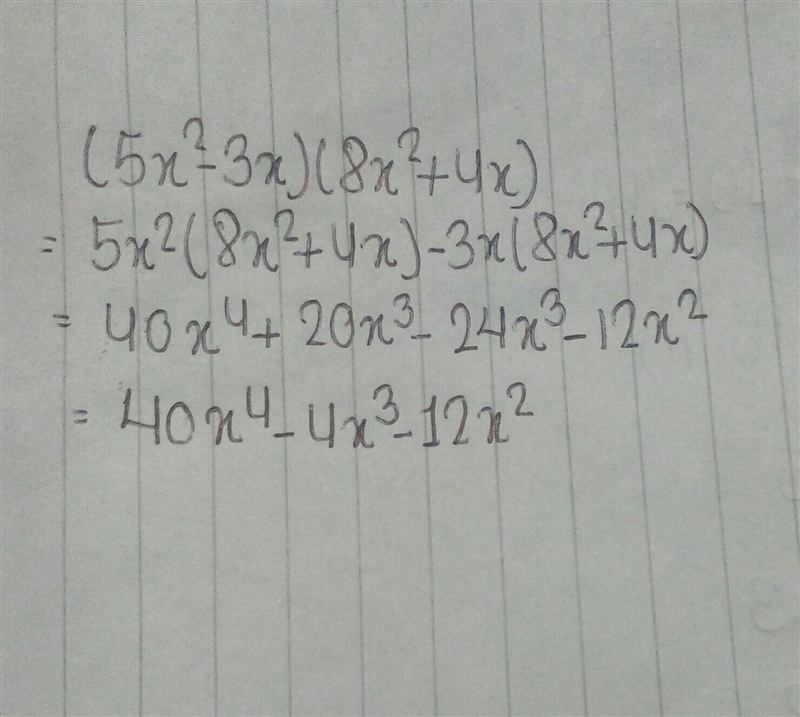 (5x²-3x)(8x²+4x)
= 5x²(8x²+4x)-3x(8x²+4x)
= 40x⁴+20x³-24x³-12x²
= 40x⁴-4x³-12x²